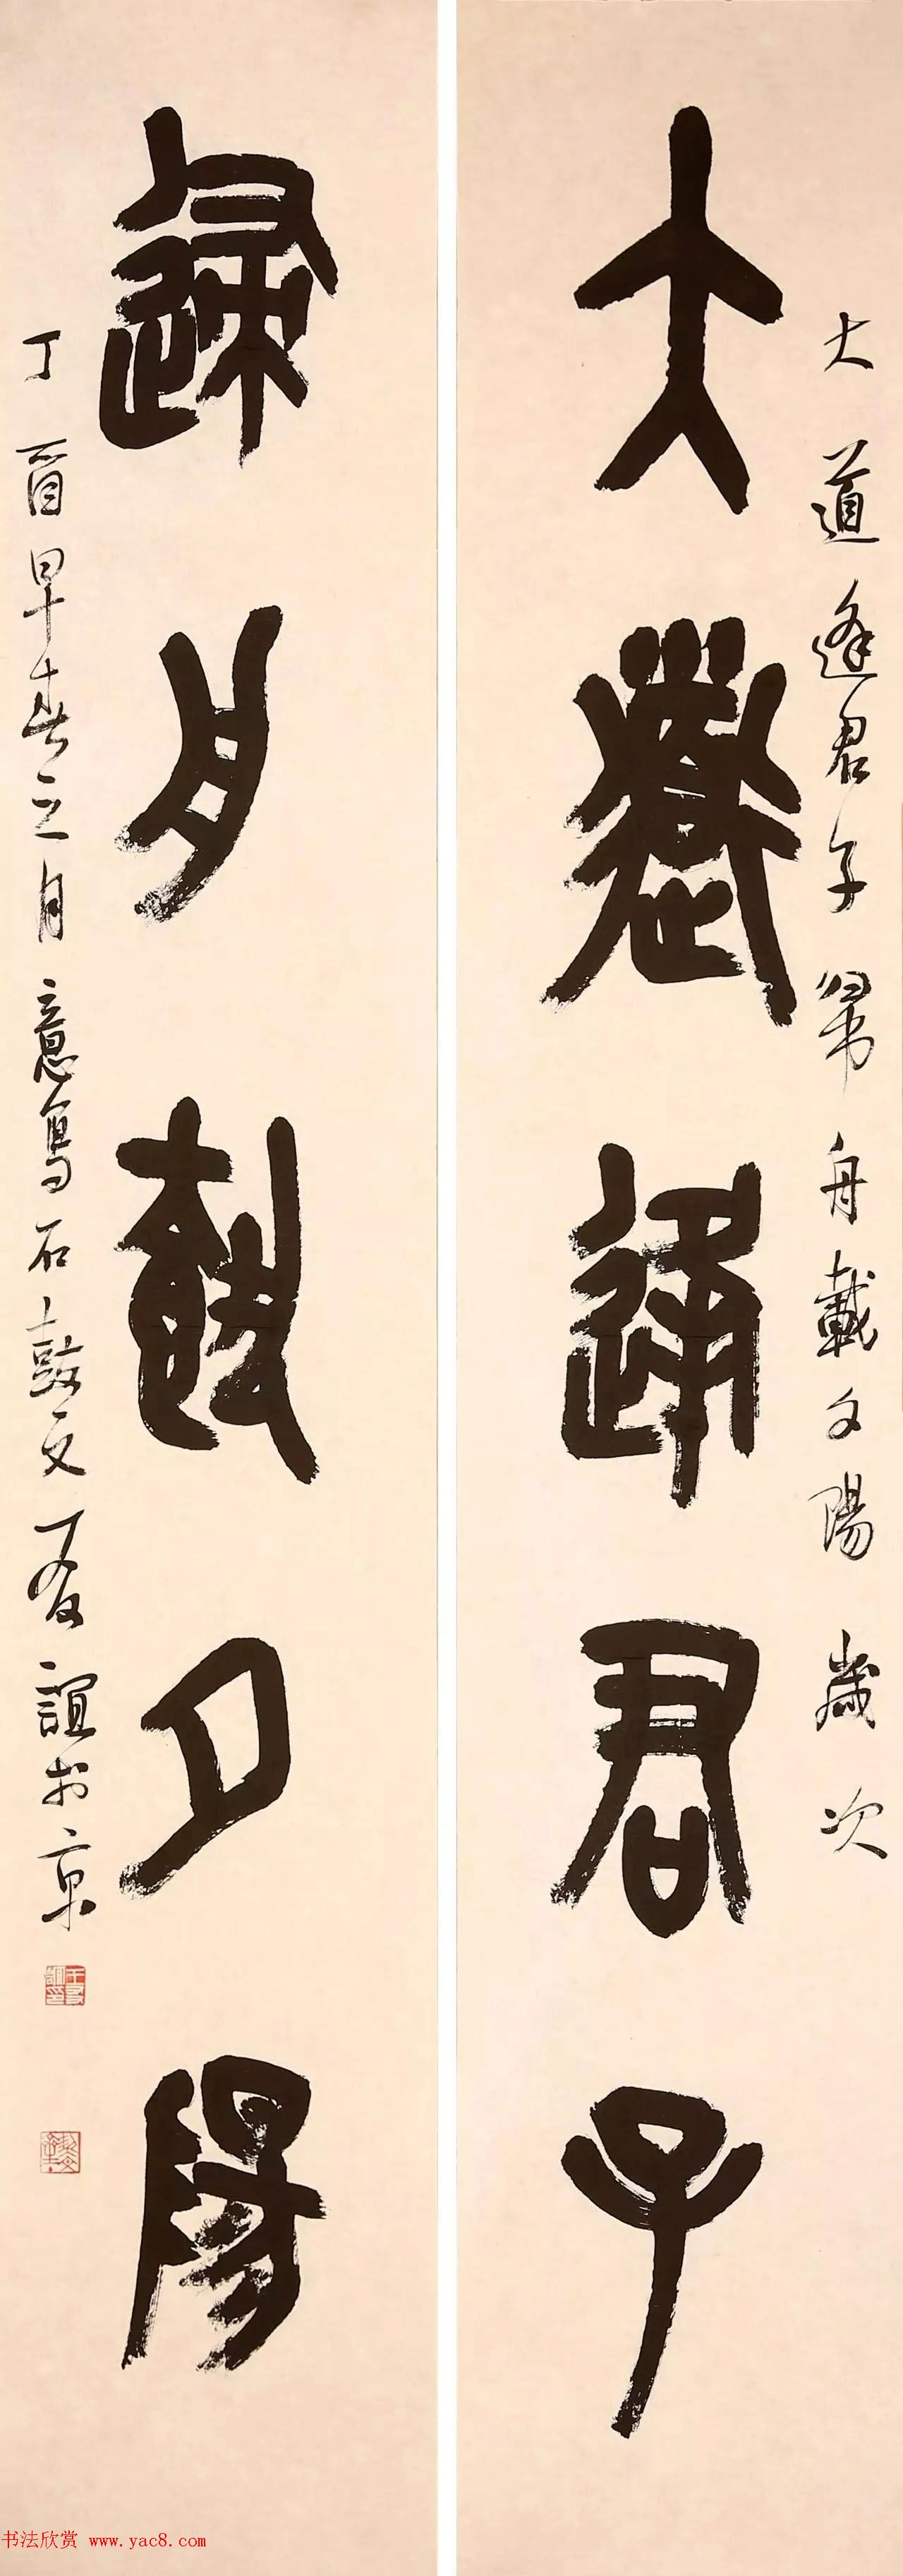 大道逢君子
大道逢君子歸舟載夕陽 歲次
歸舟載夕陽
丁酉早春之月意寫石鼓文友誼於京
书法欣赏 www.yac8.com